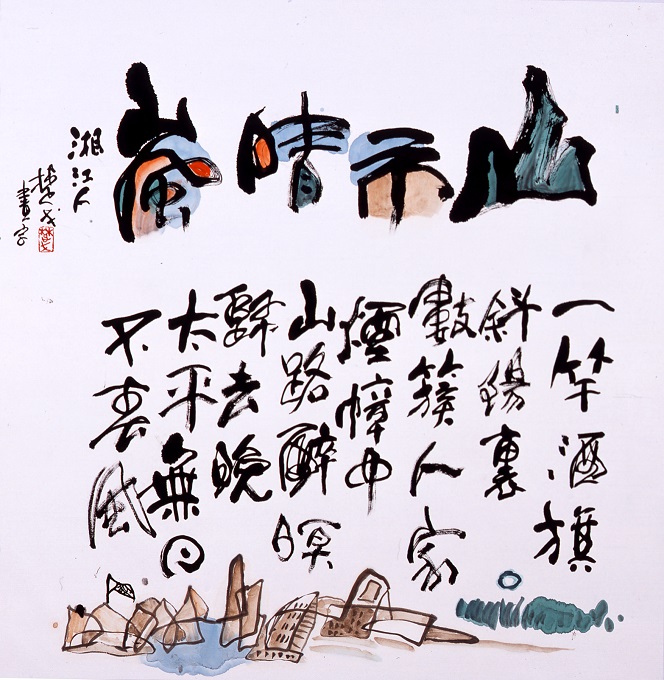 山市晴嵐
一竿酒旗
斜陽裏
數簇人家
煙幛中
山路醉瞑
歸去晚
太平無日
不春風
湘江人
楚戈